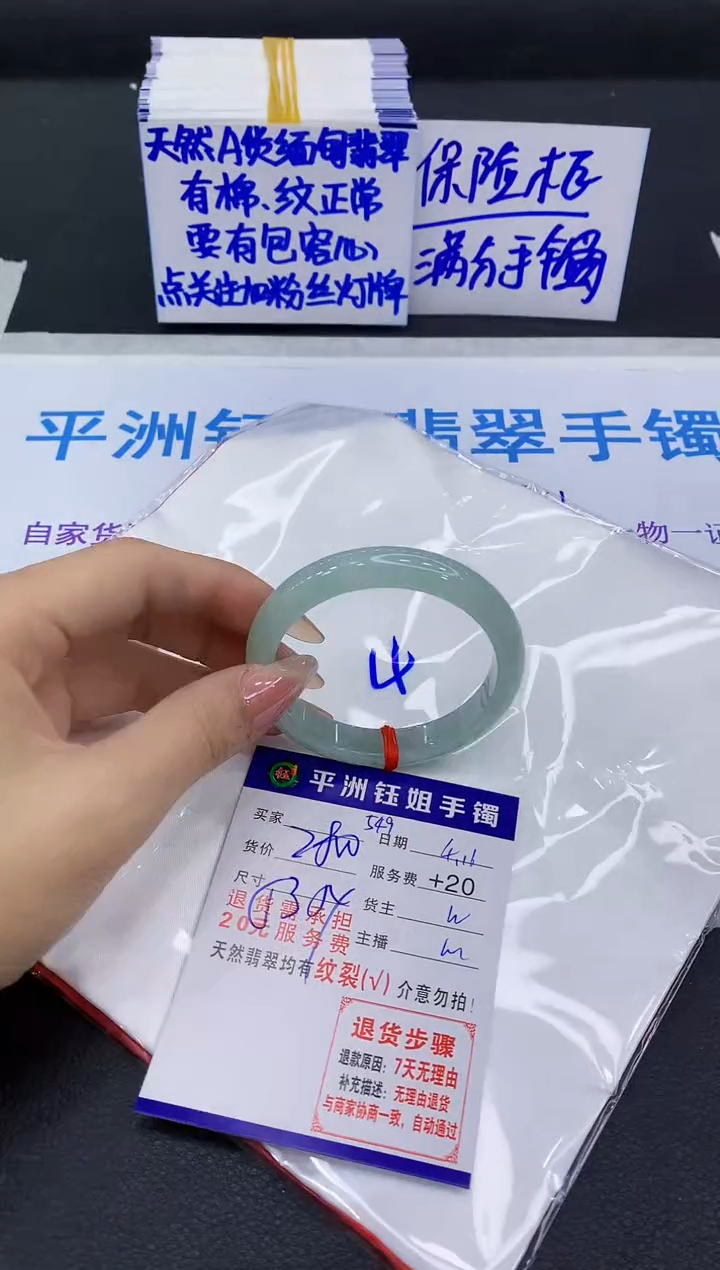 天然A货缅甸翡翠
有棉、纹正常
要有包容心
点关注加粉丝灯牌
保险柜
满分手镯
平洲钰 翡翠手镯
自家货 一物一证
4
平洲钰姐手镯
买家
549
日期
货价 2800
服务费 +20
尺寸
货主
退货需承担
20元服务费
主播
天然翡翠均有纹裂(√) 介意勿拍!
退货步骤
退款原因: 7天无理由
补充描述: 无理由退货
与商家协商一致, 自动通过